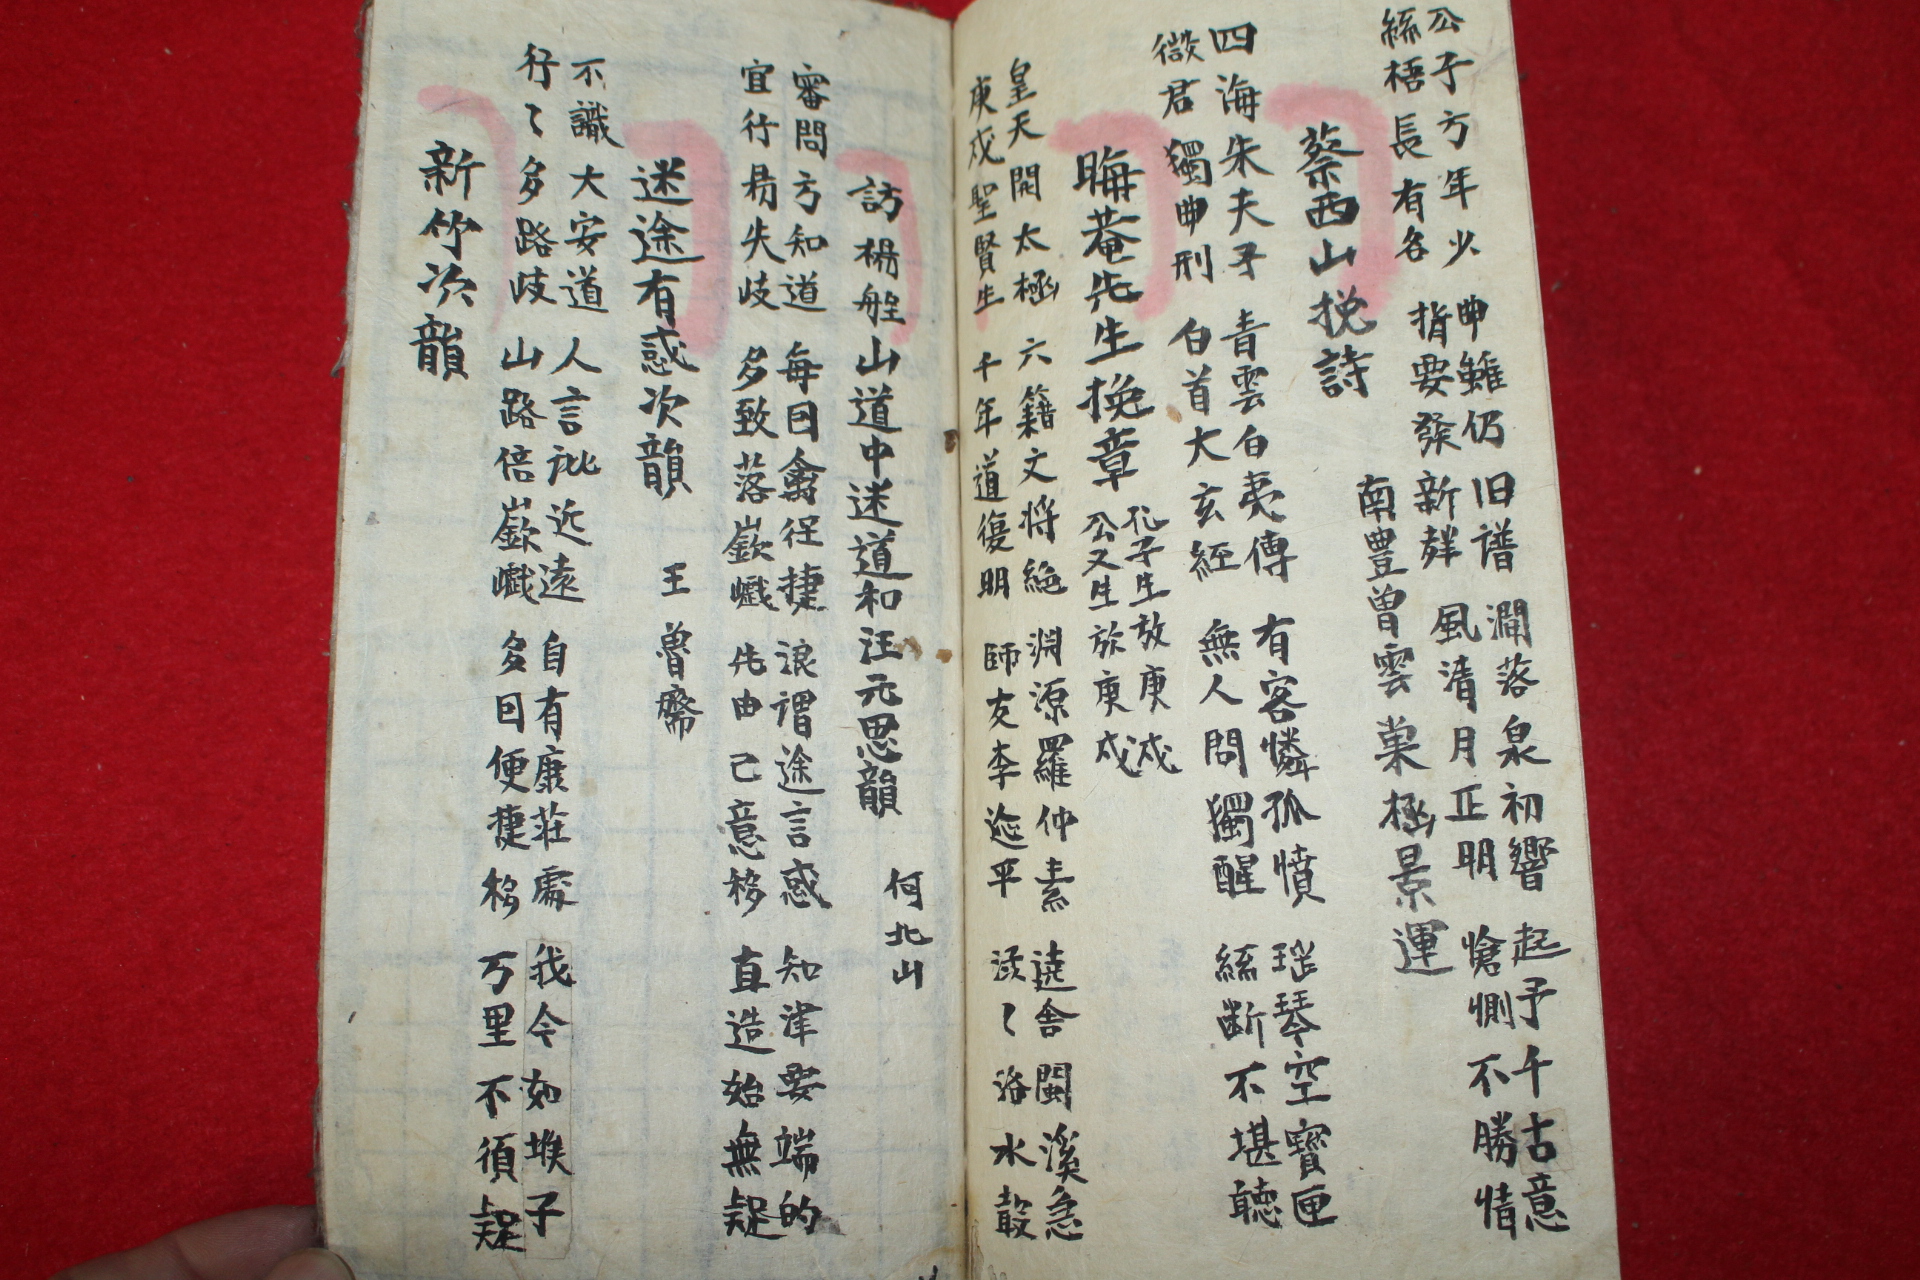 公子方年少 曲雖仍旧譜 澗落泉初響 起予千古意
絲梧長有名 指要發新群 風清月正明 愴惻不勝情
南豊曾雲巢極景運
蔡西山挽詩
四海朱夫子 青雲白夷傳 有客憐孤憤 瑶琴空寶匣
徵君獨典刑 白首大玄經 無人問獨醒 絲斷不堪聽
晦菴先生挽章 孔子生放庚戌
公又生放庚戌
皇天開太極 六籍文将絶 淵源羅仲素 遶舍閩溪急
庚戌聖賢生 千年道復明 師友李延平 淡〻洛水
訪楊船山道中迷道和汪元思韻 何北山
審問方知道 每因禽徑捷 浪謂途言惑 知津要端的
宜行易失岐 多致落嶔巇 先由己意移 直造始無疑
迷途有惑次韻 王魯齋
不識大安道 人言訛近遠 自有康荘處 我今如堠子
行〻多路歧 山路倍嶔巇 多因便捷移 万里不須疑
新竹次韻